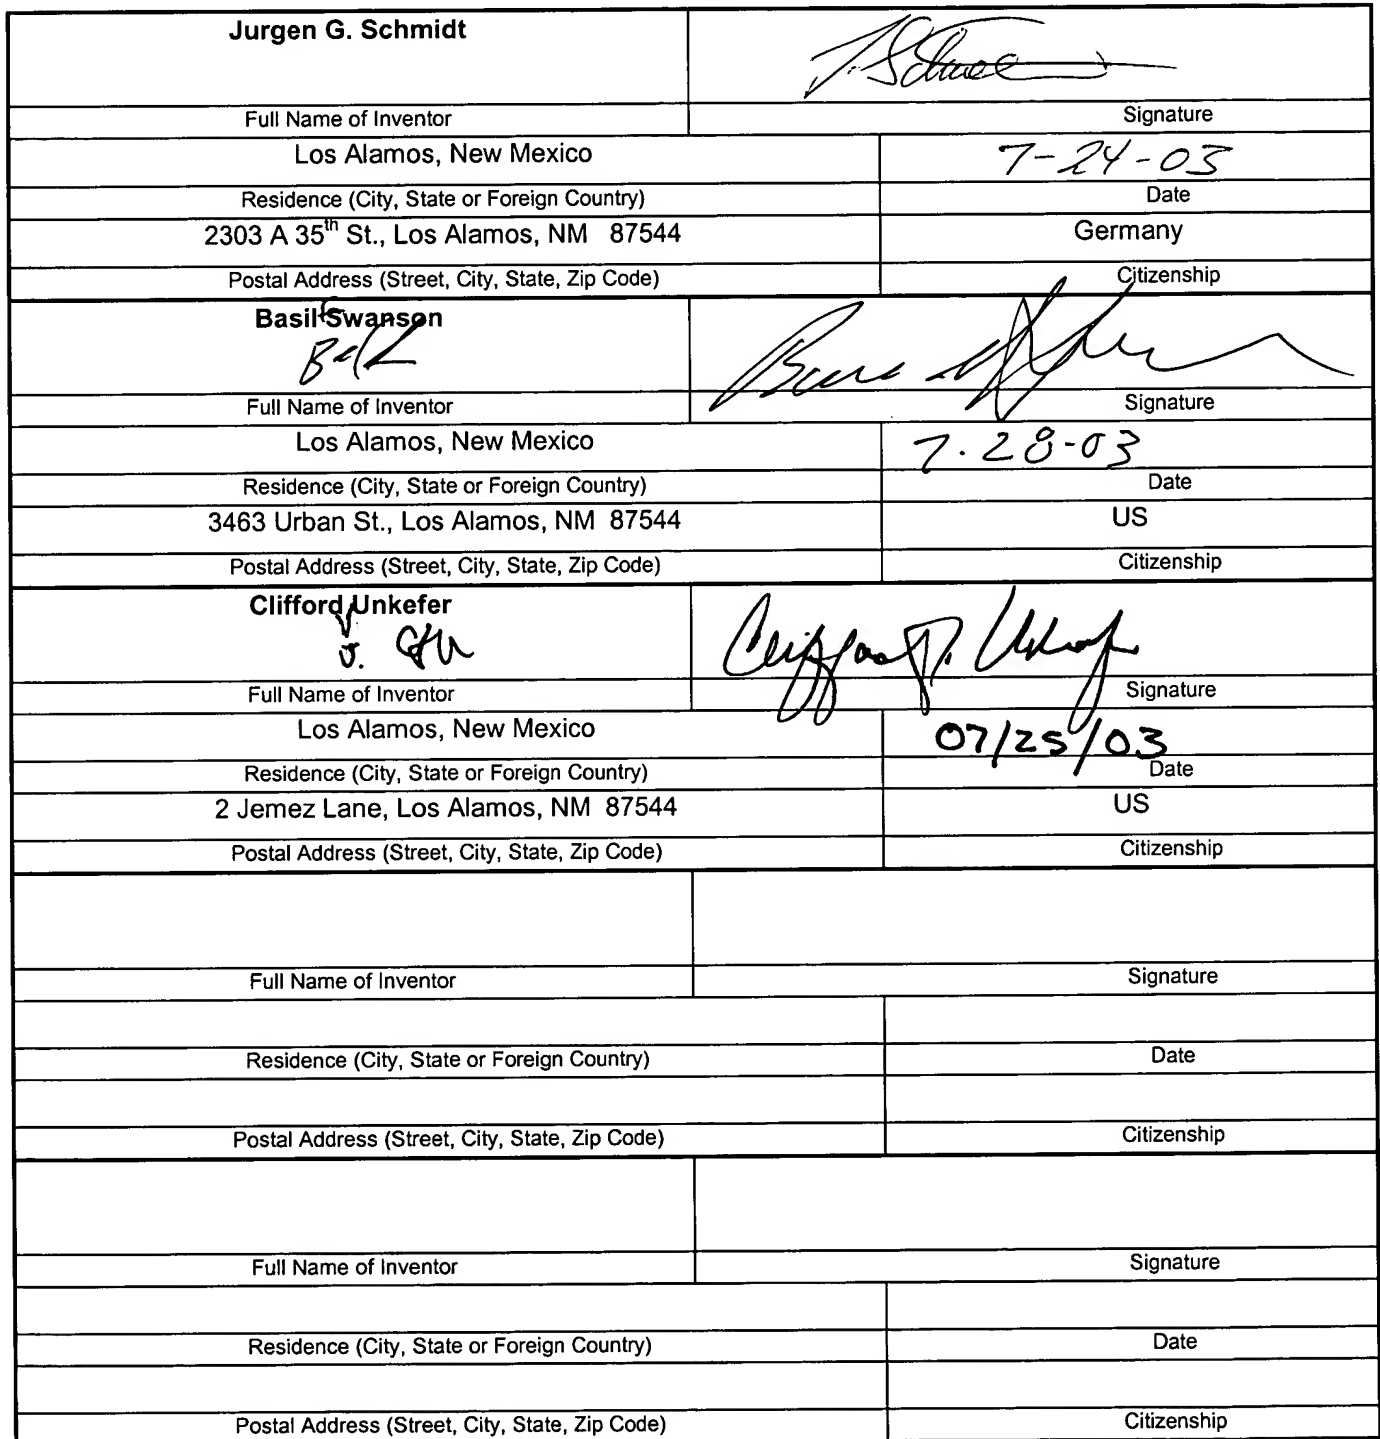 Jurgen G. Schmidt
Full Name of Inventor Signature
Los Alamos, New Mexico 7-24-03
Residence (City, State or Foreign Country) Date
2303 A 35th St., Los Alamos, NM 87544 Germany
Postal Address (Street, City, State, Zip Code) Citizenship
Basil Swanson
Full Name of Inventor Signature
Los Alamos, New Mexico 7-28-03
Residence (City, State or Foreign Country) Date
3463 Urban St., Los Alamos, NM 87544 US
Postal Address (Street, City, State, Zip Code) Citizenship
Clifford Unkefer
J.
Full Name of Inventor Signature
Los Alamos, New Mexico 07/25/03
Residence (City, State or Foreign Country) Date
2 Jemez Lane, Los Alamos, NM 87544 US
Postal Address (Street, City, State, Zip Code) Citizenship
Full Name of Inventor Signature
Residence (City, State or Foreign Country) Date
Postal Address (Street, City, State, Zip Code) Citizenship
Full Name of Inventor Signature
Residence (City, State or Foreign Country) Date
Postal Address (Street, City, State, Zip Code) Citizenship